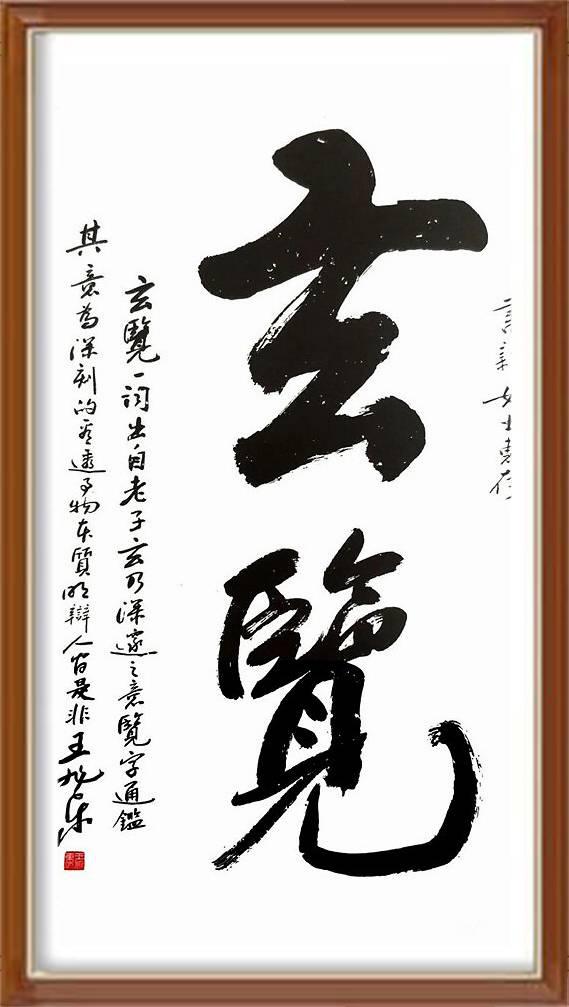 女士惠存
玄覽
玄覽一詞出自老子玄乃深邃之意覽字通鑑
其意為深刻的看透事物本質明辯人間是非王